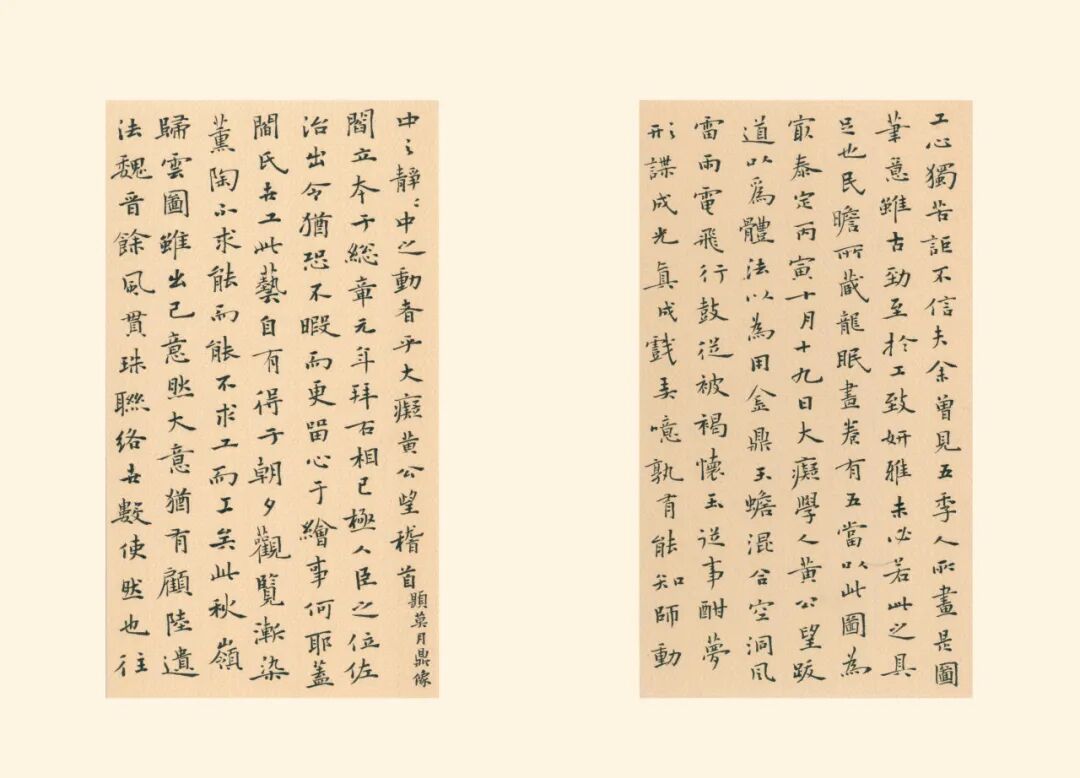 工心獨苦詎不信夫余曾見五季人所畫是圖
筆意雖古勁至於工致妍雅未必若此之具
足也民瞻所藏龍眠畫卷有五當以此圖為
冣泰定丙寅十月十九日大癡學人黃公望跋
道以爲體法以為用金鼎玉蟾混合空洞風
雷雨電飛行鼓從被褐懷玉從事酣夢
形諜成光眞成戲弄噫孰有能知師動
中之靜〻中之動者乎大癡黃公望稽首題莫月鼎像
閻立本于總章元年拜右相已極人臣之位佐
治出令猶恐不暇而更留心于繪事何耶蓋
閻氏世工此藝自有得于朝夕觀覽漸染
薰陶不求能而能不求工而工矣此秋嶺
歸雲圖雖出己意然大意猶有顧陸遺
法魏晉餘風貫珠聯絡世數使然也往